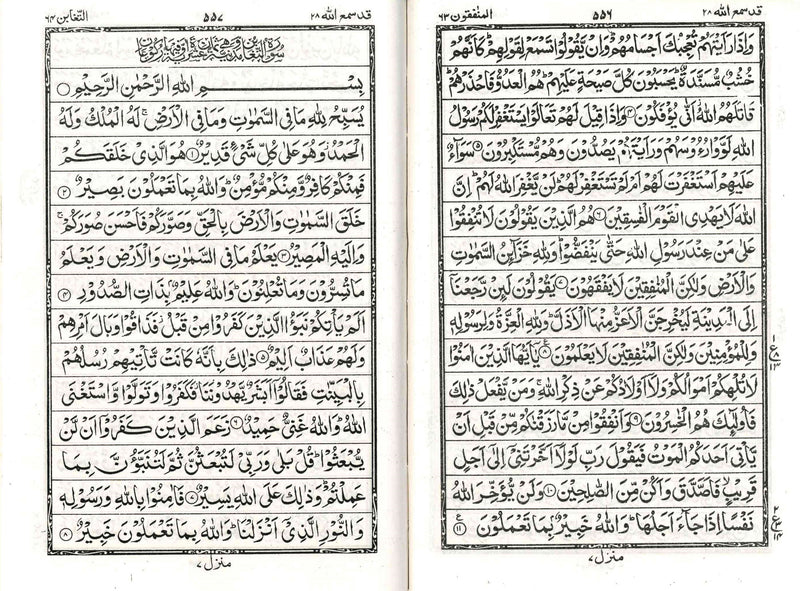 المنٰفقون ۶۳
۵۵۶
قد سمع الله ۲۸
وَاِذَا رَاَيْتَهُمْ تُعْجِبُكَ اَجْسَامُهُمْ ؕ وَاِنْ يَّقُوْلُوْا تَسْمَعْ لِقَوْلِهِمْ ؕ كَاَنَّهُمْ
خُشُبٌ مُّسَنَّدَةٌ ؕ يَحْسَبُوْنَ كُلَّ صَيْحَةٍ عَلَيْهِمْ ؕ هُمُ الْعَدُوُّ فَاحْذَرْهُمْ ؕ
قَاتَلَهُمُ اللّٰهُ ؗ اَنّٰى يُؤْفَكُوْنَ ۴ وَاِذَا قِيْلَ لَهُمْ تَعَالَوْا يَسْتَغْفِرْ لَكُمْ رَسُوْلُ
اللّٰهِ لَوَّوْا رُءُوْسَهُمْ وَرَاَيْتَهُمْ يَصُدُّوْنَ وَهُمْ مُّسْتَكْبِرُوْنَ ۵ سَوَآءٌ
عَلَيْهِمْ اَسْتَغْفَرْتَ لَهُمْ اَمْ لَمْ تَسْتَغْفِرْ لَهُمْ ؕ لَنْ يَّغْفِرَ اللّٰهُ لَهُمْ ؕ اِنَّ
اللّٰهَ لَا يَهْدِى الْقَوْمَ الْفٰسِقِيْنَ ۶ هُمُ الَّذِيْنَ يَقُوْلُوْنَ لَا تُنْفِقُوْا
عَلٰى مَنْ عِنْدَ رَسُوْلِ اللّٰهِ حَتّٰى يَنْفَضُّوْا ؕ وَلِلّٰهِ خَزَآئِنُ السَّمٰوٰتِ
وَالْاَرْضِ وَلٰكِنَّ الْمُنٰفِقِيْنَ لَا يَفْقَهُوْنَ ۷ يَقُوْلُوْنَ لَئِنْ رَّجَعْنَاۤ
اِلَى الْمَدِيْنَةِ لَيُخْرِجَنَّ الْاَعَزُّ مِنْهَا الْاَذَلَّ ؕ وَلِلّٰهِ الْعِزَّةُ وَلِرَسُوْلِهٖ
وَلِلْمُؤْمِنِيْنَ وَلٰكِنَّ الْمُنٰفِقِيْنَ لَا يَعْلَمُوْنَ ۸ يٰۤاَيُّهَا الَّذِيْنَ اٰمَنُوْا
لَا تُلْهِكُمْ اَمْوَالُكُمْ وَلَاۤ اَوْلَادُكُمْ عَنْ ذِكْرِ اللّٰهِ ۚ وَمَنْ يَّفْعَلْ ذٰلِكَ
فَاُولٰٓئِكَ هُمُ الْخٰسِرُوْنَ ۹ وَاَنْفِقُوْا مِنْ مَّا رَزَقْنٰكُمْ مِّنْ قَبْلِ اَنْ
يَّاْتِىَ اَحَدَكُمُ الْمَوْتُ فَيَقُوْلَ رَبِّ لَوْلَاۤ اَخَّرْتَنِىْۤ اِلٰۤى اَجَلٍ
قَرِيْبٍ ۙ فَاَصَّدَّقَ وَاَكُنْ مِّنَ الصّٰلِحِيْنَ ۱۰ وَلَنْ يُّؤَخِّرَ اللّٰهُ
نَفْسًا اِذَا جَآءَ اَجَلُهَا ؕ وَاللّٰهُ خَبِيْرٌۢ بِمَا تَعْمَلُوْنَ ۱۱
منزل ۷
التغابن ۶۴
۵۵۷
قد سمع الله ۲۸
بِسْمِ اللّٰهِ الرَّحْمٰنِ الرَّحِيْمِ
يُسَبِّحُ لِلّٰهِ مَا فِى السَّمٰوٰتِ وَمَا فِى الْاَرْضِ ۚ لَهُ الْمُلْكُ وَلَهُ
الْحَمْدُ ؗ وَهُوَ عَلٰى كُلِّ شَىْءٍ قَدِيْرٌ ۱ هُوَ الَّذِىْ خَلَقَكُمْ
فَمِنْكُمْ كَافِرٌ وَّمِنْكُمْ مُّؤْمِنٌ ؕ وَاللّٰهُ بِمَا تَعْمَلُوْنَ بَصِيْرٌ ۲
خَلَقَ السَّمٰوٰتِ وَالْاَرْضَ بِالْحَقِّ وَصَوَّرَكُمْ فَاَحْسَنَ صُوَرَكُمْ ۚ
وَاِلَيْهِ الْمَصِيْرُ ۳ يَعْلَمُ مَا فِى السَّمٰوٰتِ وَالْاَرْضِ وَيَعْلَمُ
مَا تُسِرُّوْنَ وَمَا تُعْلِنُوْنَ ؕ وَاللّٰهُ عَلِيْمٌۢ بِذَاتِ الصُّدُوْرِ ۴
اَلَمْ يَاْتِكُمْ نَبَؤُا الَّذِيْنَ كَفَرُوْا مِنْ قَبْلُ ؗ فَذَاقُوْا وَبَالَ اَمْرِهِمْ
وَلَهُمْ عَذَابٌ اَلِيْمٌ ۵ ذٰلِكَ بِاَنَّهٗ كَانَتْ تَّاْتِيْهِمْ رُسُلُهُمْ
بِالْبَيِّنٰتِ فَقَالُوْۤا اَبَشَرٌ يَّهْدُوْنَنَا ؗ فَكَفَرُوْا وَتَوَلَّوْا وَّاسْتَغْنَى
اللّٰهُ ؕ وَاللّٰهُ غَنِىٌّ حَمِيْدٌ ۶ زَعَمَ الَّذِيْنَ كَفَرُوْۤا اَنْ لَّنْ
يُّبْعَثُوْا ؕ قُلْ بَلٰى وَرَبِّىْ لَتُبْعَثُنَّ ثُمَّ لَتُنَبَّؤُنَّ بِمَا
عَمِلْتُمْ ؕ وَذٰلِكَ عَلَى اللّٰهِ يَسِيْرٌ ۷ فَاٰمِنُوْا بِاللّٰهِ وَرَسُوْلِهٖ
وَالنُّوْرِ الَّذِىْۤ اَنْزَلْنَا ؕ وَاللّٰهُ بِمَا تَعْمَلُوْنَ خَبِيْرٌ ۸
منزل ۷